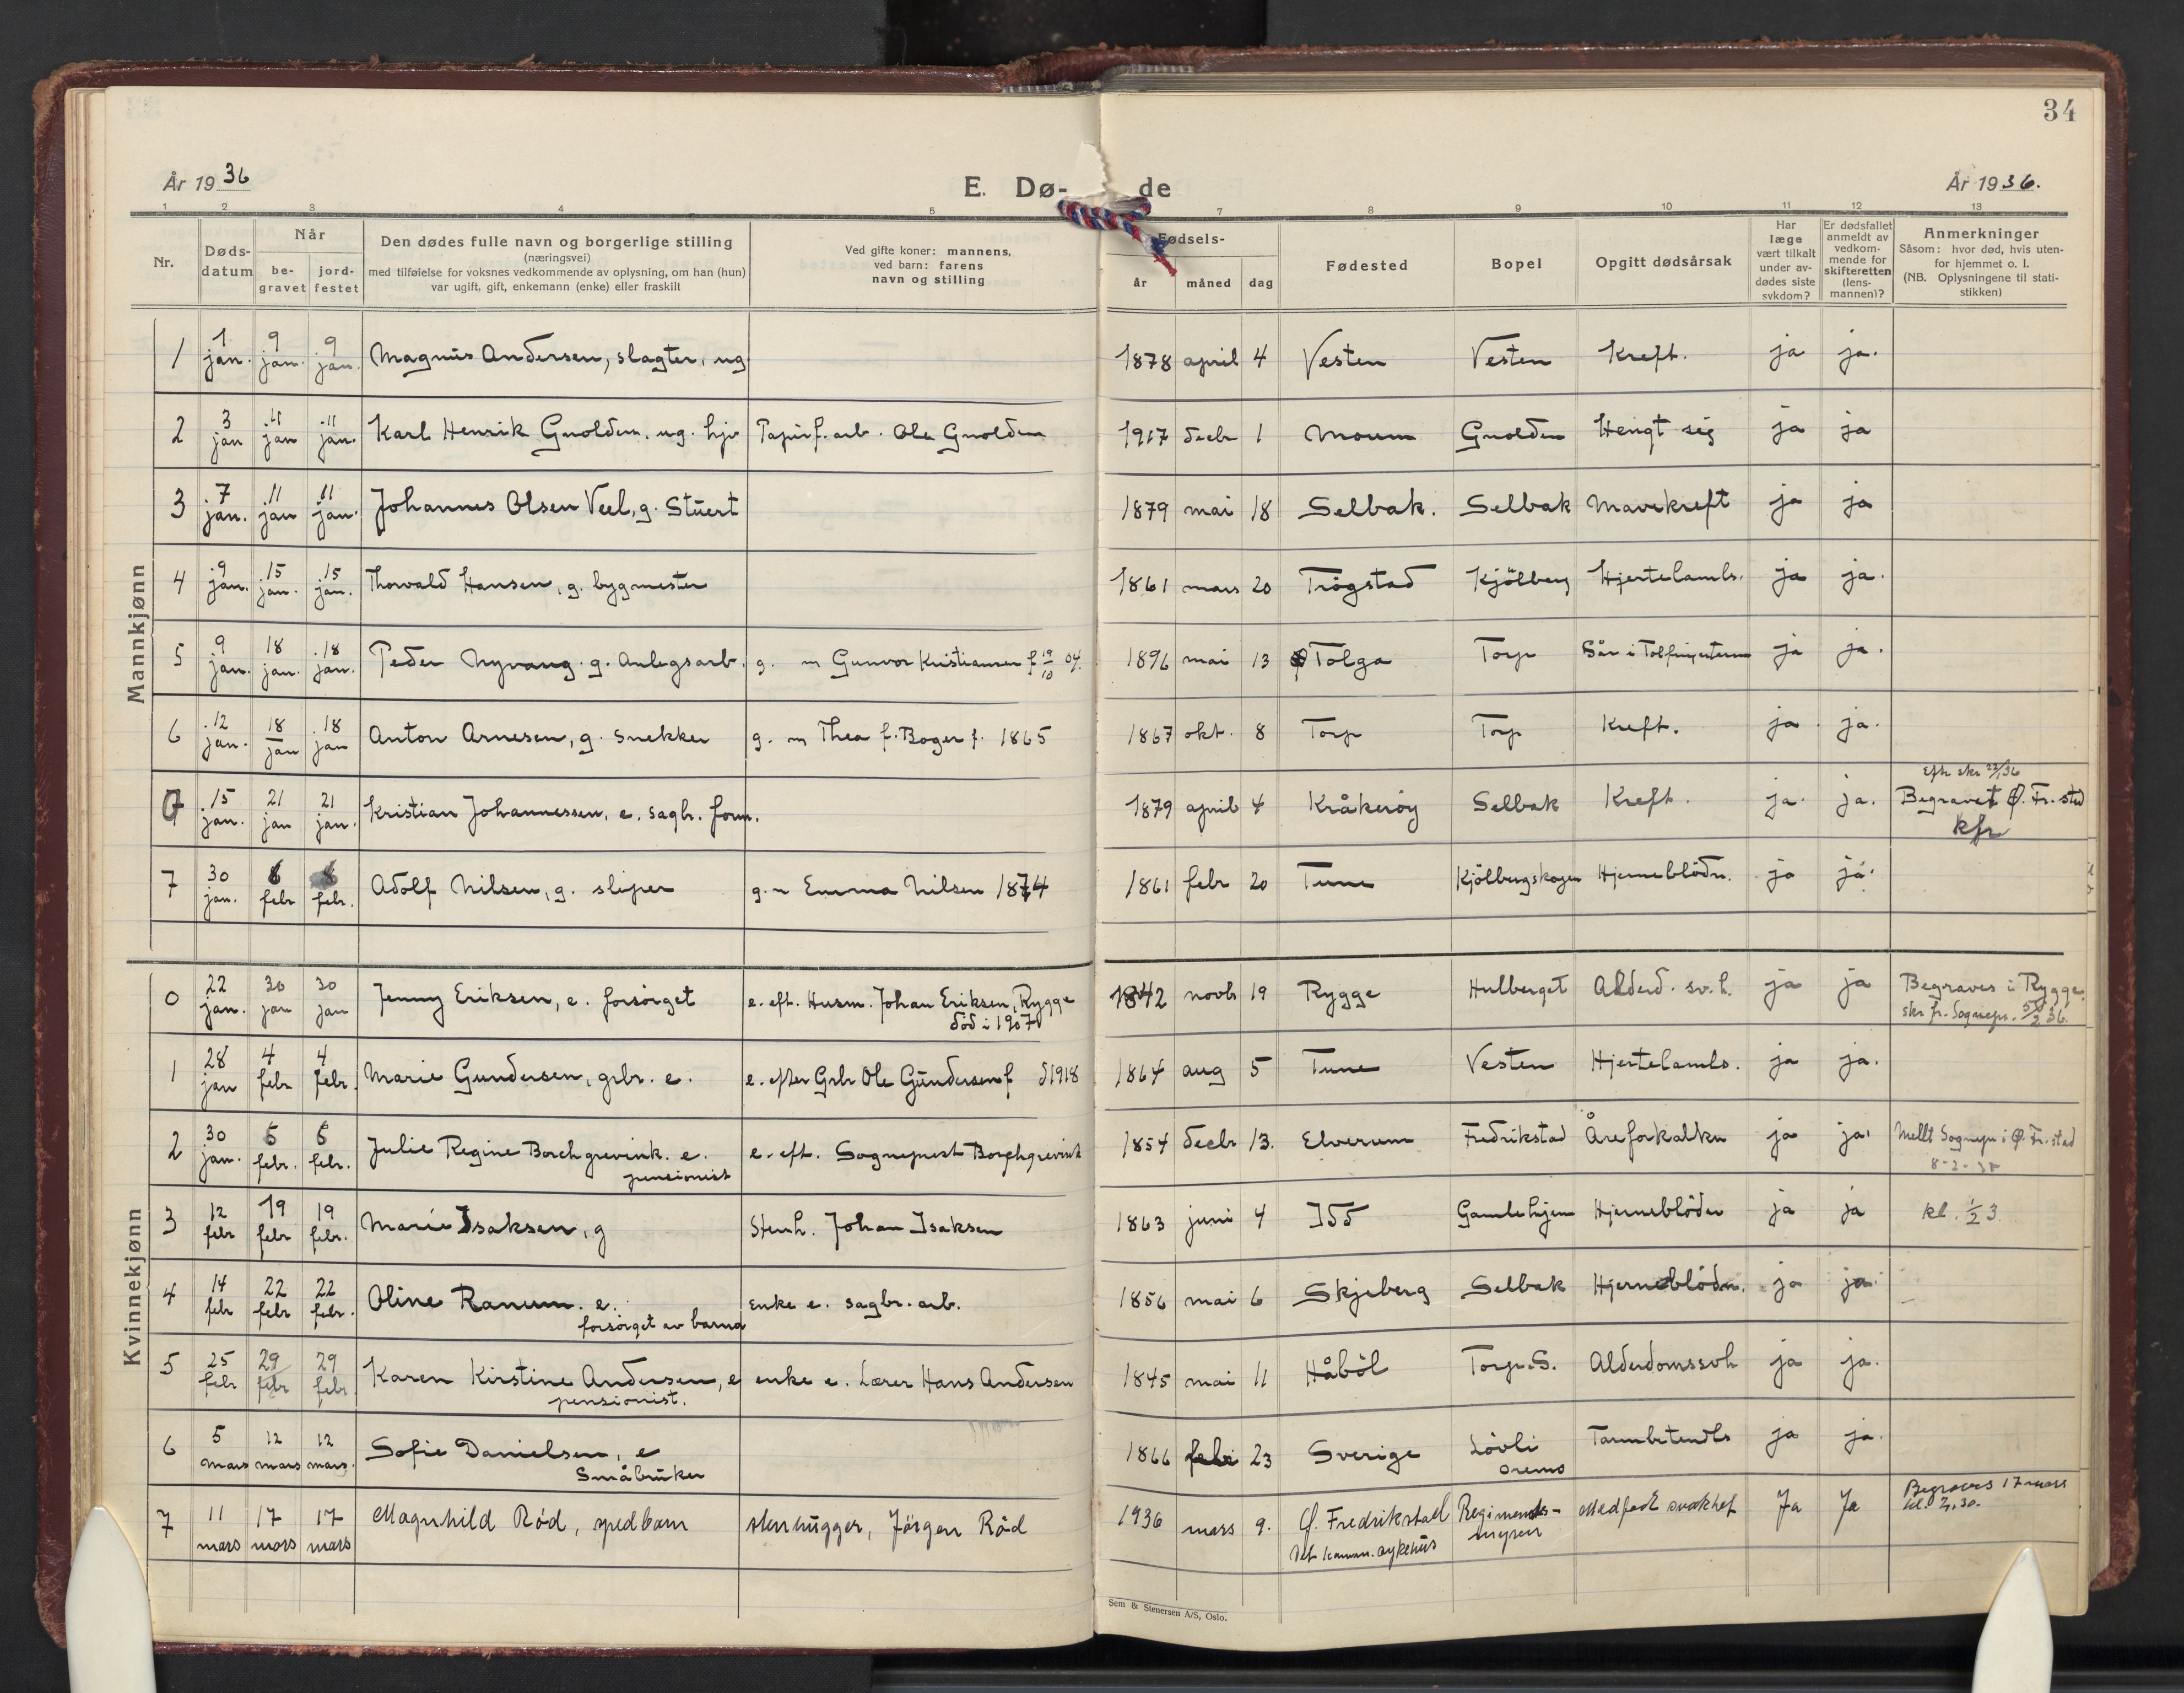 34
År 1936
E. Dø- de
År 1936.
1 2 3 4 5 7 8 9 10 11 12 13
Nr.
Døds-
datum
Når
be-
gravet
jord-
festet
Den dødes fulle navn og borgerlige stilling
(næringsvei)
med tilføielse for voksnes vedkommende av oplysning, om han (hun)
var ugift, gift, enkemann (enke) eller fraskilt
Ved gifte koner: mannens,
ved barn: farens
navn og stilling
Fødsels-
år måned dag
Fødested
Bopel
Opgitt dødsårsak
Har
læge
vært tilkalt
under av-
dødes siste
sykdom?
Er dødsfallet
anmeldt av
vedkom-
mende for
skifteretten
(lens-
mannen)?
Anmerkninger
Såsom: hvor død, hvis uten-
for hjemmet o. l.
(NB. Oplysningene til stati-
stikken)
Mannkjønn
1 1 jan. 9 jan. 9 jan. Magnus Andersen, slagter, ug 1878 april 4 Vesten Vesten Kreft. ja ja.
2 3 jan 11 jan 11 jan. Karl Henrik Gnolden. ug. hjv Papirf. arb. Ole Gnolden 1917 decbr 1 Moum Gnolden Hengt sig ja ja
3 7 jan. 11 jan 11 jan. Johannes Olsen Veel, g. Stuert 1879 mai 18 Selbak. Selbak Mavekreft ja ja
4 9 jan. 15 jan. 15 jan. Thorvald Hansen, g. bygmester 1861 mars 20 Trögstad Kjölberg Hjertelamls. ja ja.
5 9 jan. 18 jan. 18 jan. Peder Nyvang. g. Anlegsarb. g. m Gunvor Kristiansen f 19/10 04. 1896 mai 13 Tolga Torp Sår i Tolffingertarm ja ja.
6 12 jan. 18 jan 18 jan Anton Arnesen, g. snekker g. m Thea f. Boger f. 1865 1867 okt. 8 Torp Torp Kreft. ja ja.
0 15 jan. 21 jan 21 jan. Kristian Johannessen, e. sagbr. form. 1879 april 4 Kråkeröy Selbak Kreft. ja. ja. Efter skr 22/1 36
Begravet Ø. Fr. stad
kfr
7 30 jan. 8 febr 8 febr. Adolf Nilsen, g. sliper g. m Emma Nilsen 1874 1861 febr 20 Tune Kjölbergskogen Hjerneblödn. ja ja.
Kvinnekjønn
0 22 jan. 30 jan 30 jan Jenny Eriksen, e. forsörget e. eft. Husm. Johan Eriksen, Rygge
död i 1907 1842 novbr 19 Rygge Hulberget Alderd. sv. h. ja ja Begraves i Rygge.
skr fr. Sognepr. 5/2 36.
1 28 jan 4 febr 4 febr. Marie Gundersen, grbr. e. e. efter Grbr Ole Gundersen f d 1918 1864 aug 5 Tune Vesten Hjertelamls. ja ja.
2 30 jan. 6 febr. 6 febr. Julie Regine Borchgrevink. e.
pensionist e. eft. Sogneprest Borchgrevink 1854 decbr 13. Elverum Fredrikstad Åreforkalkn ja ja. Meldt Sognepr i Ø. Fr. stad
3 12 febr 19 febr 19 febr. Marie Isaksen, g Stenh. Johan Isaksen 1863 juni 4 Idd Gamlehjem Hjerneblöden ja ja kl. 1/2 3.
4 14 febr 22 febr 22 febr. Oline Ranum. e.
forsörget av barna Enke e. sagbr. arb. 1856 mai 6 Skjeberg Selbak Hjerneblödn. ja ja.
5 25 febr 29 febr 29 febr Karen Kirstine Andersen, e
pensionist. enke e. Lærer Hans Andersen 1845 mai 11 Håböl Torp. S. Alderdomssvh ja ja.
6 5 mars 12 mars 12 mars. Sofie Danielsen, e
Småbruker 1866 febr 23 Sverige Lövli
Oremo Tarmbetendls ja ja.
7 11 mars 17 mars 17 mars Magnhild Rød, spedbarn stenhugger, Jörgen Röd 1936 mars 9. Ø. Fredrikstad
Det komm. sykehus Regiments-
myren Medfødt svakhet Ja Ja Begraves 17 mars
kl. 2,30.
Sem & Stenersen A/S, Oslo.